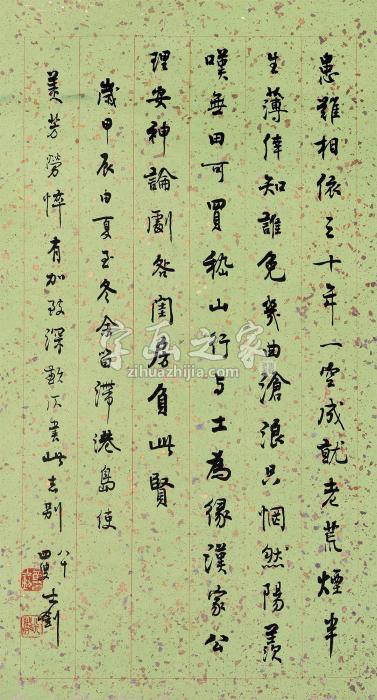 患難相依三十年一空成就老荒煙半
生薄倖知誰免幾曲滄浪只惘然陽羨
嘆無田可買嵇山行与士為緣漢家公
理安神論劇咎閨房負此賢
歲甲辰由夏至冬余留滯港島使
美芳勞悴有加致深歉仄書此志別
八十四叟士釗
字画之家
zihuazhijia.com